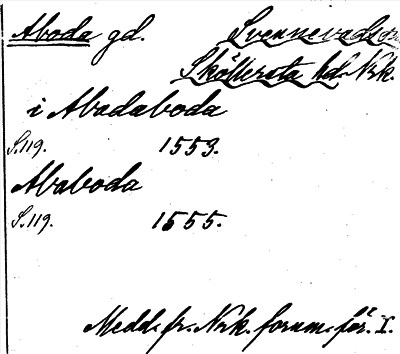 Aboda gd. Svennevads sn
Sköllersta hd. Nrk.
i Abadaboda
S.119. 1553.
Ababoda
S.119. 1555.
Medd. fr. Nrk. fornm. för. I.